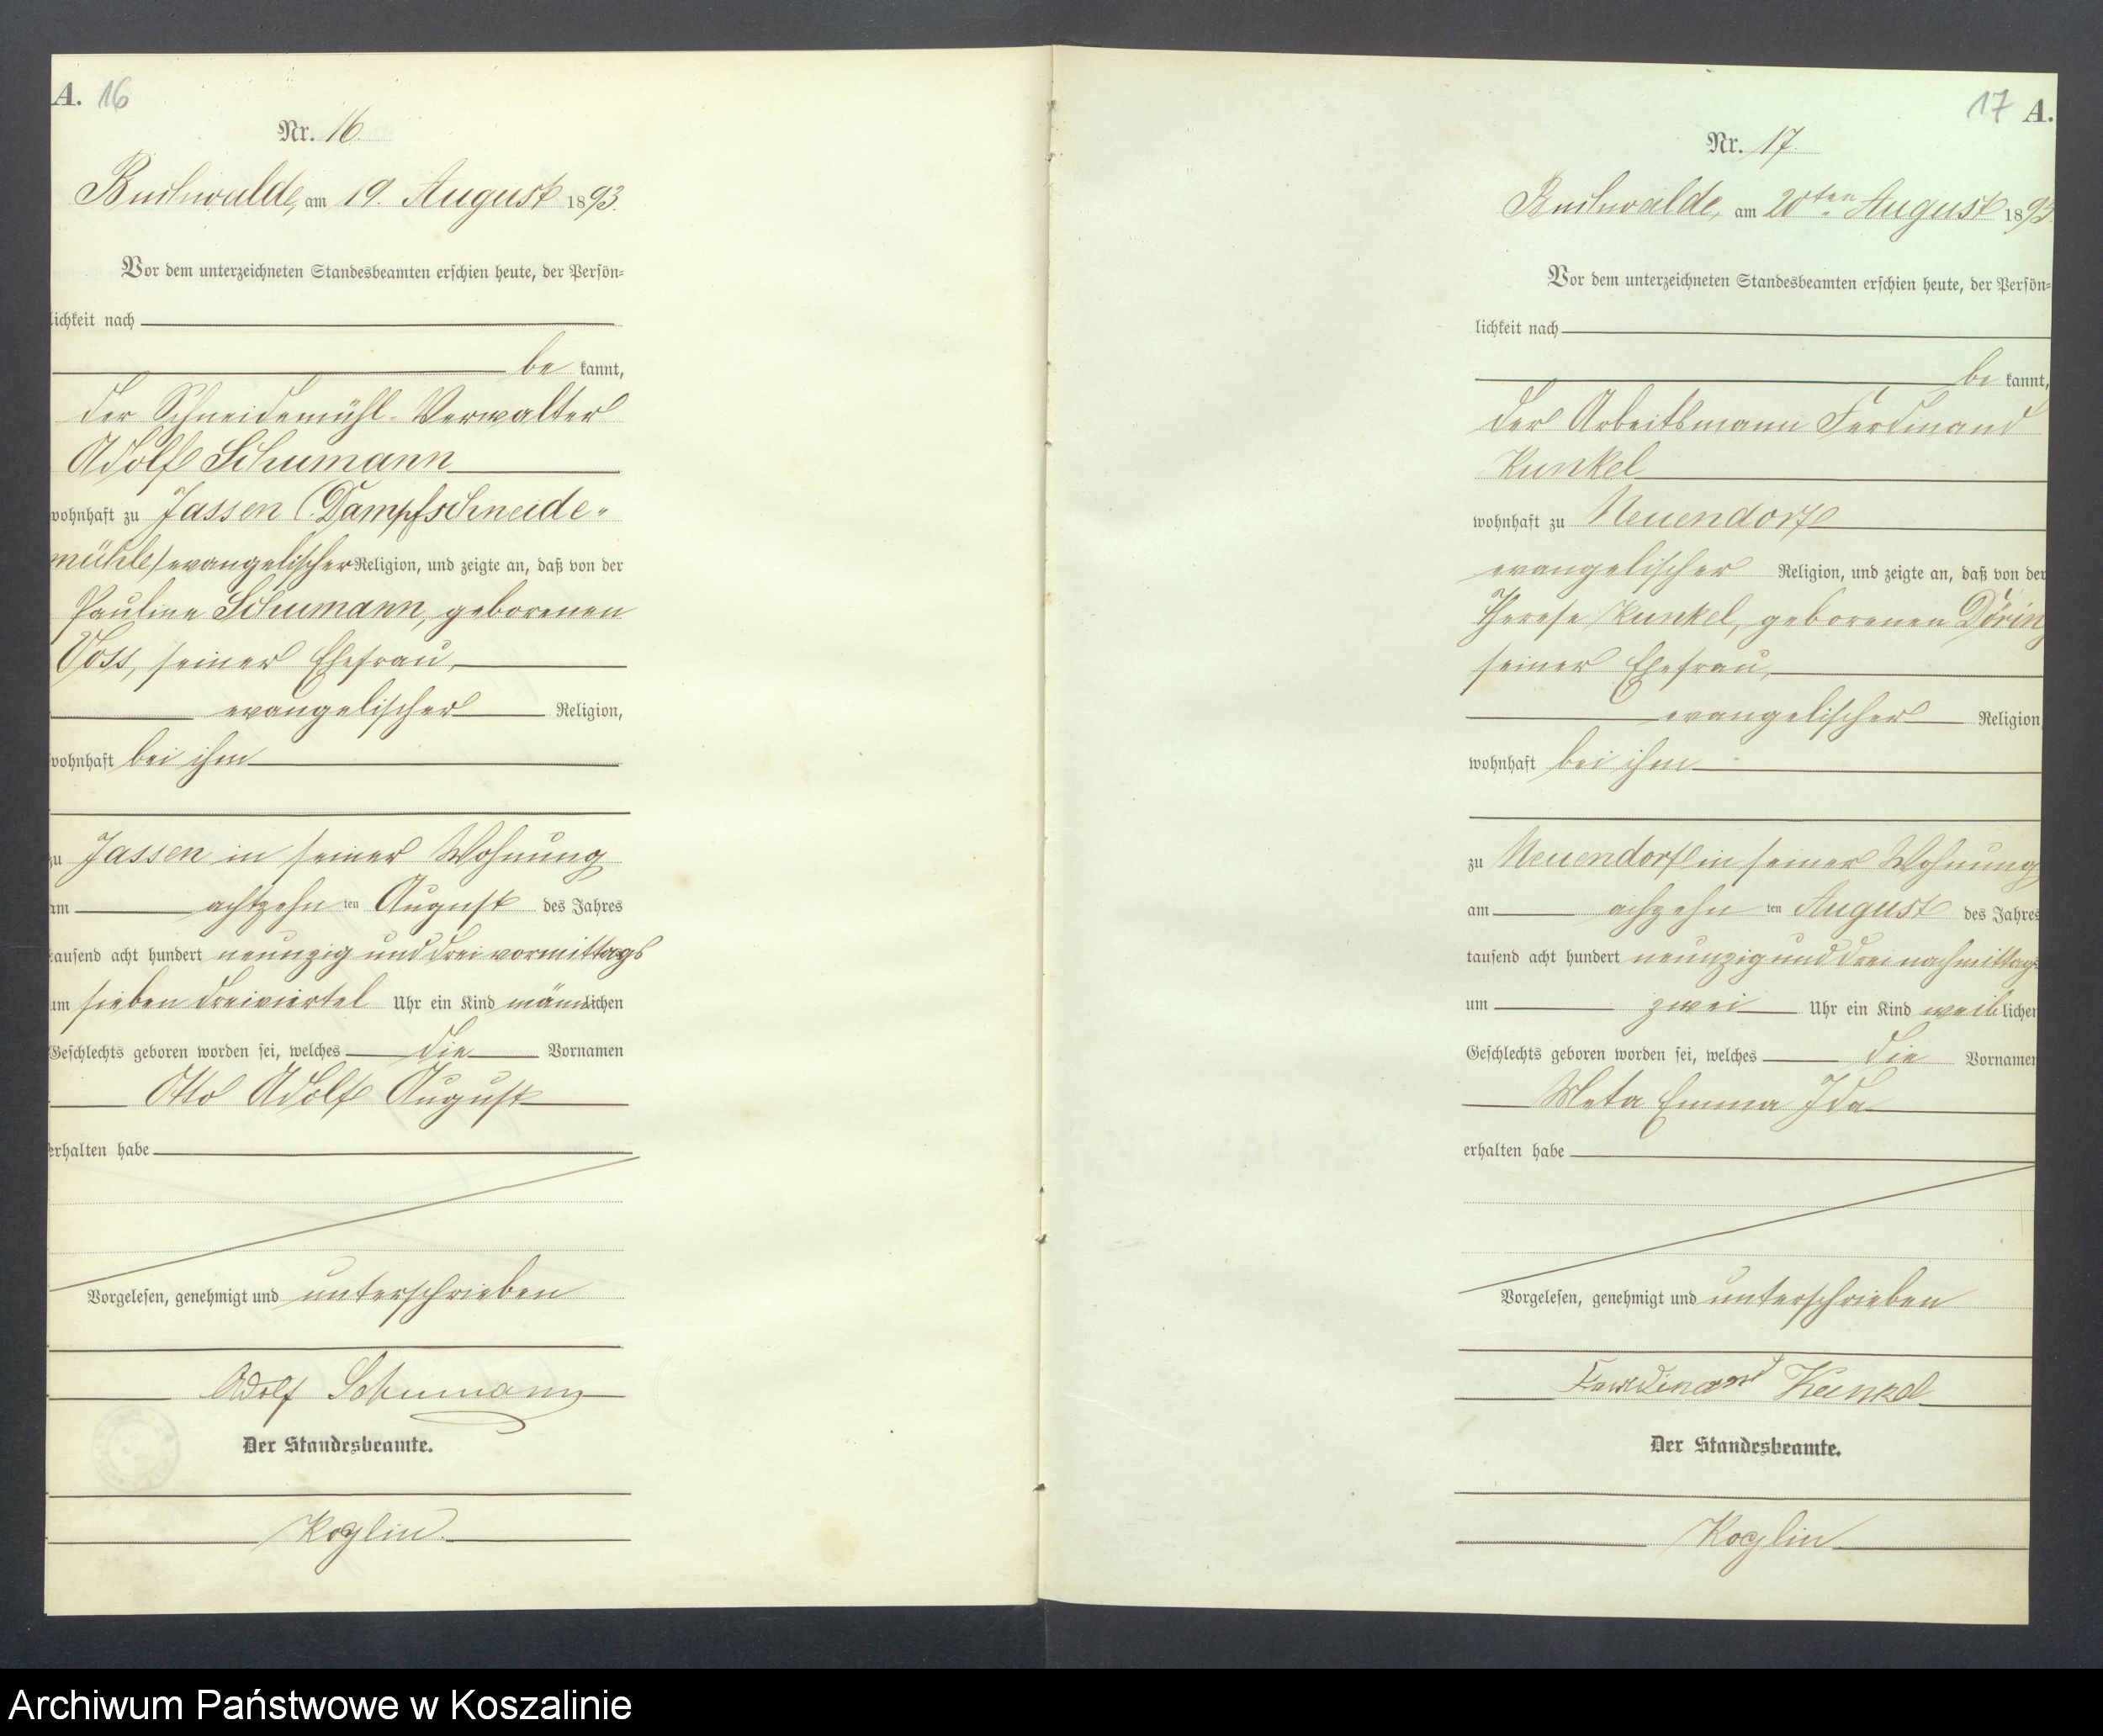 A. 16
Nr. 16.
Buchwalde, am 19. August 1893.
Vor dem unterzeichneten Standesbeamten erschien heute, der Persön-
lichkeit nach
be kannt,
der Schneidemühl-Verwalter
Adolf Schumann
wohnhaft zu Jassen (Dampfschneide-
mühle) evangelischer Religion, und zeigte an, daß von der
Pauline Schumann, geborenen
Voss, seiner Ehefrau,
evangelischer Religion,
wohnhaft bei ihm
zu Jassen in seiner Wohnung
am achtzehn ten August des Jahres
tausend acht hundert neunzig und drei vormittags
um sieben dreiviertel Uhr ein Kind männlichen
Geschlechts geboren worden sei, welches die Vornamen
Otto Adolf August
erhalten habe
Vorgelesen, genehmigt und unterschrieben
Adolf Schumann
Der Standesbeamte.
Koglin.
17 A.
Nr. 17.
Buchwalde, am 20ten August 1893
Vor dem unterzeichneten Standesbeamten erschien heute, der Persön-
lichkeit nach
be kannt,
der Arbeitsmann Ferdinand
Kunkel
wohnhaft zu Neuendorf
evangelischer Religion, und zeigte an, daß von der
Therese Kunkel, geborenen Döring
seiner Ehefrau,
evangelischer Religion
wohnhaft bei ihm
zu Neuendorf in seiner Wohnung
am achzehn ten August des Jahres
tausend acht hundert neunzig und drei nachmittags
um zwei Uhr ein Kind weiblichen
Geschlechts geboren worden sei, welches die Vornamen
Meta Emma Ida
erhalten habe
Vorgelesen, genehmigt und unterschrieben
Ferdinand Kunkel
Der Standesbeamte.
Koglin
Archiwum Państwowe w Koszalinie